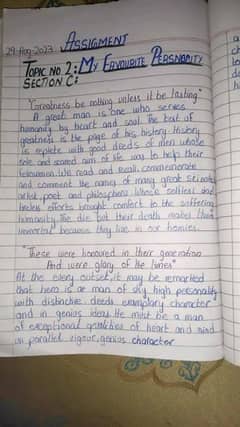 29-Aug-2023 ASSIGMENT
TOPIC NO 2: MY FAVOURITE PERSNALITY
SECTION C:
"Greatness be nothing unless it be lasting"
A great man is one who serves
humanity by heart and soul. The trait of
greatness is the page of his history. History
is replete with good deeds of men whose
sole and sacred aim of life was to help their
fellowmen. We read and recall, commemorate
and comment the names of many great scientist
artist, poet and philosophers whose selfless and
tireless efforts brought comfort to the suffering
humanity. The die but their death makes them
immortal because they live in our homies.
"These were honoured in their generation
And were glory of the times"
At the every outset, it may be remarked
that hero is ar man of sky high personality
with distinctive deeds exemplary character
and in genius ideas. He must be a man
of exceptional qualities of heart and mind
un parallel vigour, genius character